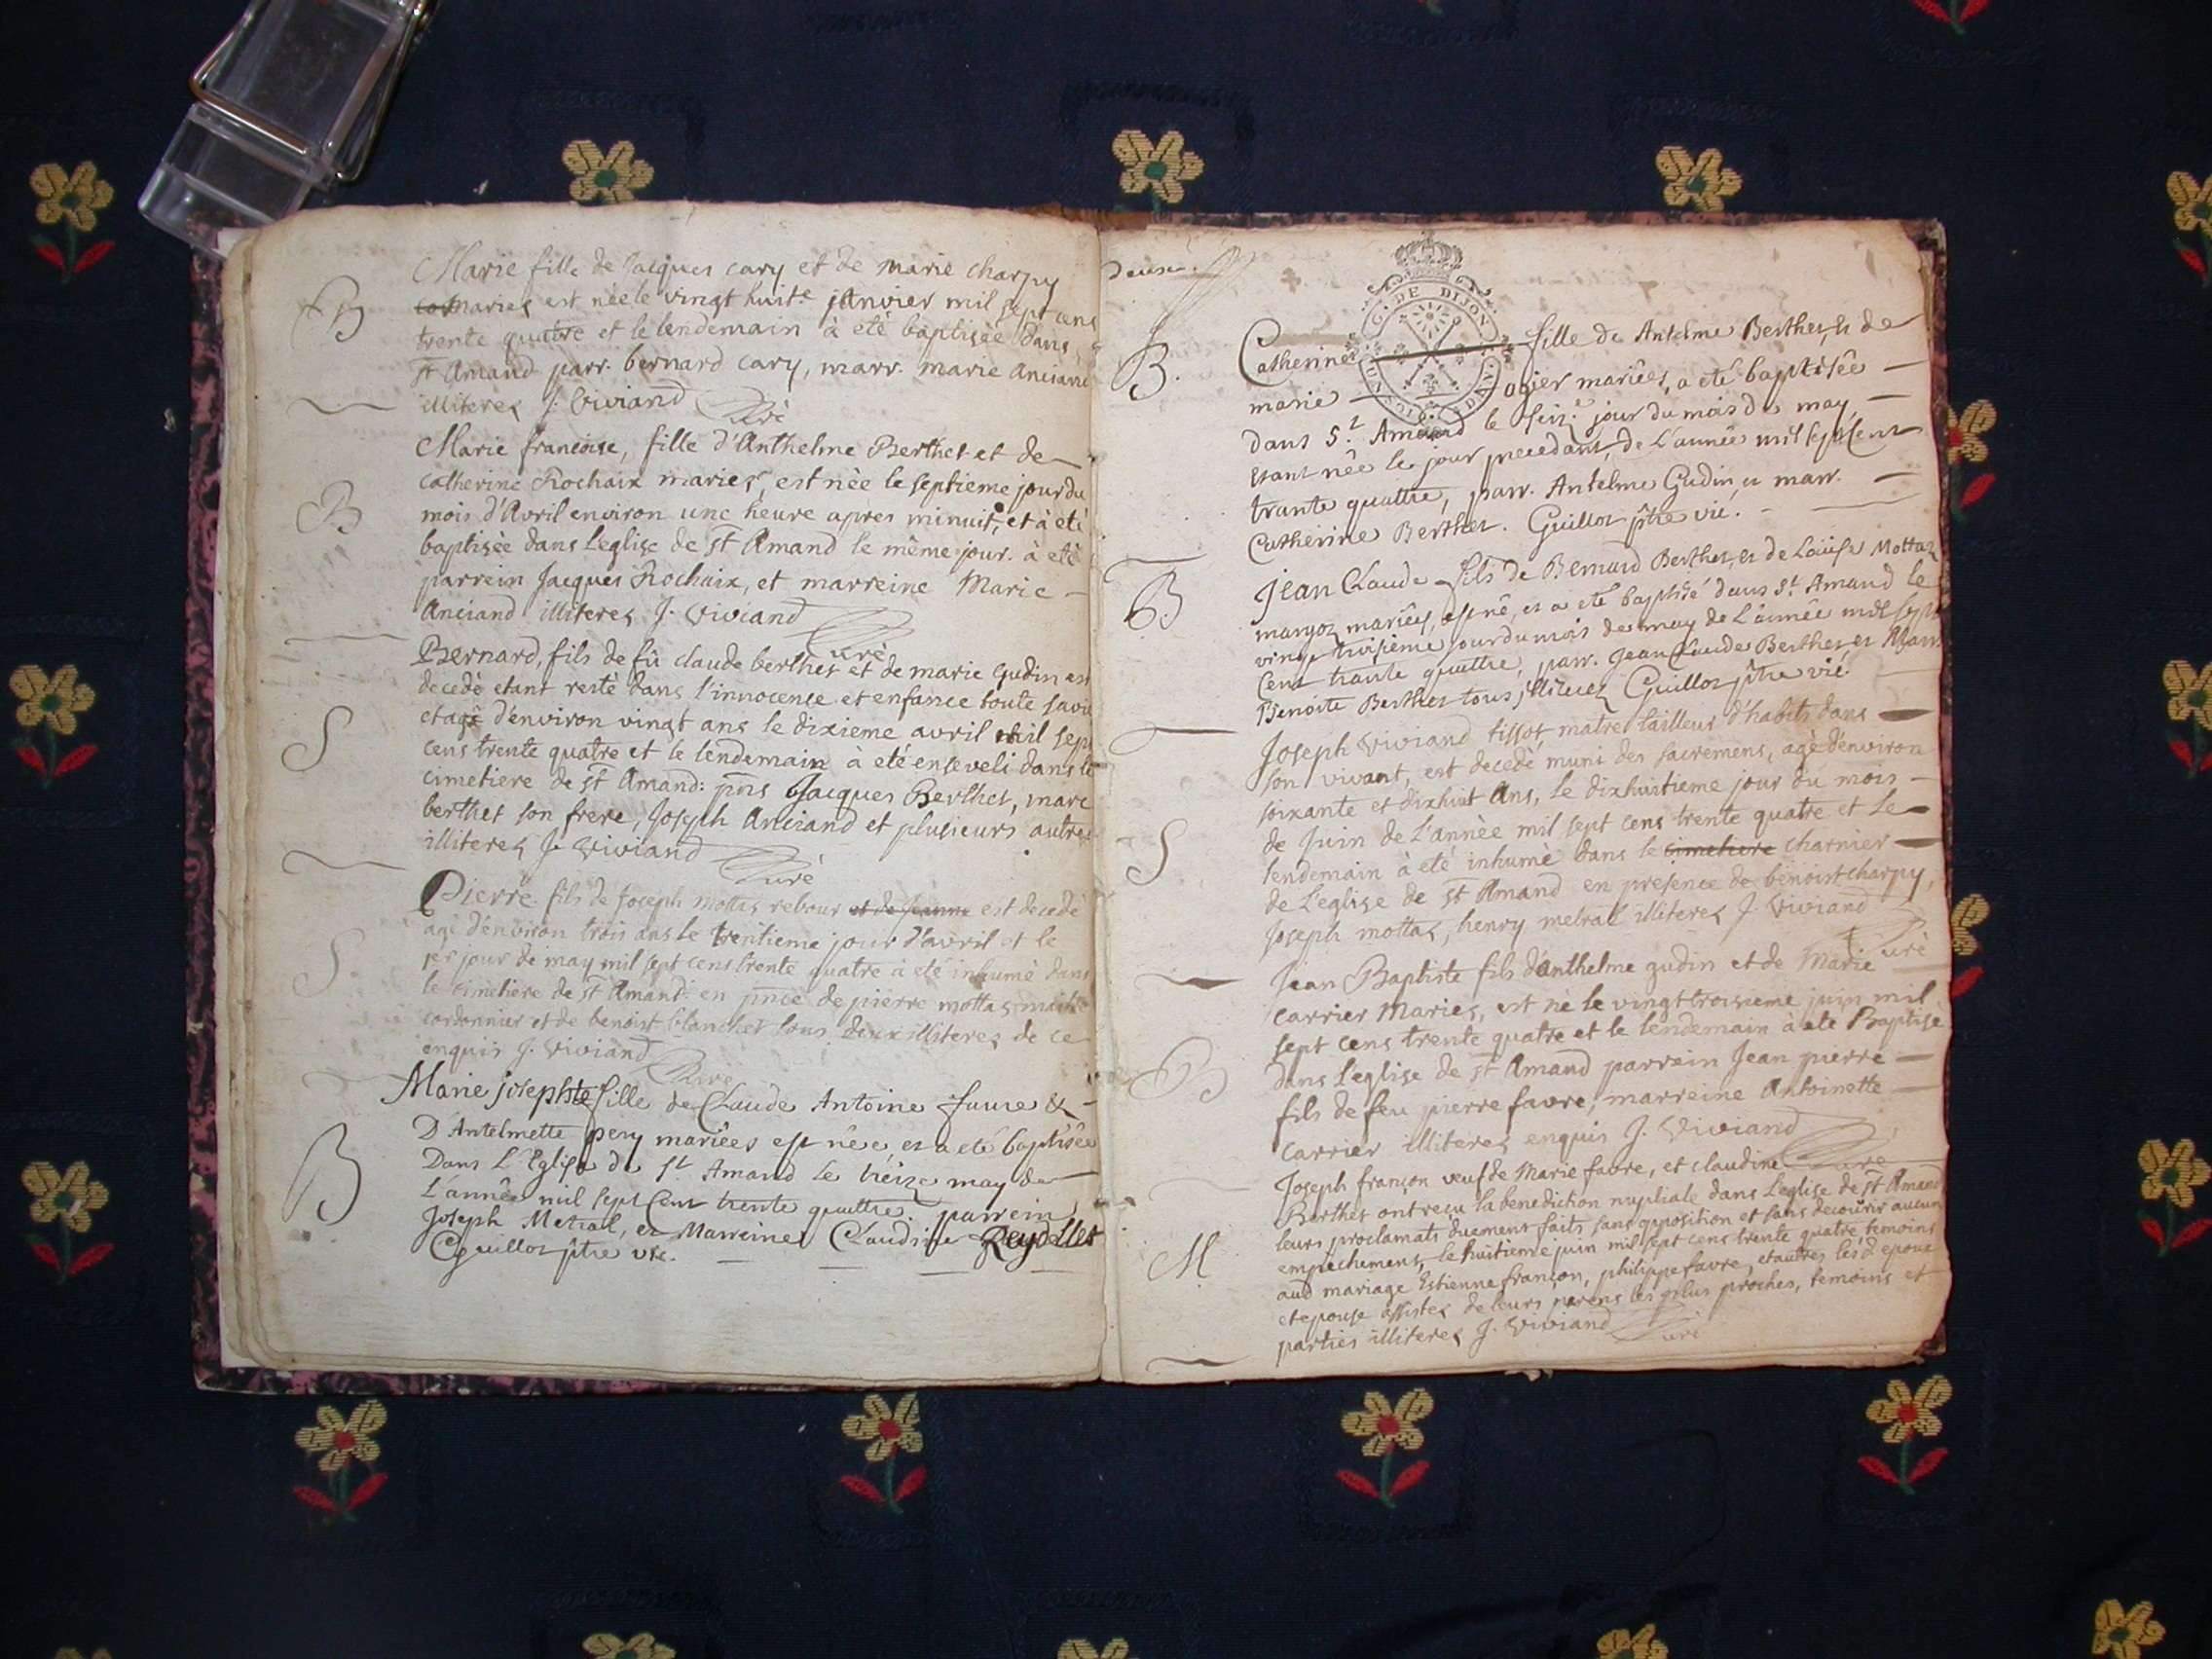 B
Marie fille de Jacques cary et de marie charpy
mariez est nèe le vingt huit.e janvier mil sept cens
trente quatre et le lendemain à eté baptisèe dans
st Amand parr. bernard cary, marr. marie Anciand
illiterez J. Viviand Curè
B
Marie francoise, fille d'Anthelme Berthet et de
catherine Rochaix mariez, est nèe le septieme jour du
mois d'Avril environ une heure apres minuit, et à eté
baptisèe dans l'eglise de st Amand le même jour. à eté
parrein Jacques Rochaix, et marreine Marie
Anciand illiterez J. Viviand Curè
S
Bernard, fils de fû claude berthet et de marie gudin est
decedè etant restè dans l'innocense et enfance toute sa vie
et agè d'environ vingt ans le dixieme avril mil sept
cens trente quatre et le lendemain à eté enseveli dans le
cimetiere de st Amand: pñs Jacques Berthet, marc
berthet son frere, Joseph Anciand et plusieurs autres
illiterez J. Viviand Curè
S
Pierre fils de Joseph mottas rebour et de Jeanne est decedè
agè d'environ trois ans le trentieme jour d'avril et le
1er jour de may mil sept cens trente quatre à eté inhumè dans
le cimetiere de st Amand: en pñce de pierre mottas maitre
cordonnier et de benoist blanchet tous deux illiterez de ce
enquis J. Viviand Curè
B
Marie josephte fille de Claude Antoine favre &
D'Antelmette pery mariées est née, et a eté baptisée
Dans L'Eglise de St Amand le treize may de
L'année mil sept Cent trente quattre. parrein
Joseph Metral, et Marreine Claudine Reydellet
Guillot ptre vie.
Deuxe.
G. DE DIJON
B.
Catherine fille de Antelme Berthet, et de
marie ogier mariées, a eté baptisée
dans S.t Amand le seiz.e jour du mois de may,
Etant née le jour precedant, de L'année mil sept Cent
trante quattre, parr. Antelme Gudin, et marr.
Catherine Berthet. Guillot ptre vié.
B
Jean Claude fils de Bernard Berthet, et de Louise Mottaz
margoz mariées, est né, et a eté baptisé dans St. Amand le
vingt troisieme jour du mois de may de L'année mil sept
Cent trante quattre, parr. Jean Claude Berthet, et Marr.
Benoite Berthet tous illiterez Guillot ptre vié.
S
Joseph Viviand tissot, matre tailleur d'habits dans
son vivant, est decedè muni des sacremens, agè d'environ
soixante et dixhuit Ans, le dixhuitieme jour du mois
de Juin de L'annèe mil sept cens trente quatre et le
lendemain à eté inhumè dans le cimetiere charnier
de l'eglise de st Amand en presence de benoist charpy,
Joseph mottaz, henry metral illiterez J. Viviand Curè
B
Jean Baptiste fils d'anthelme gudin et de Marie
carrier Mariez, est nè le vingt troisieme juin mil
sept cens trente quatre et le lendemain à eté Baptisé
dans l'eglise de st Amand parrein Jean pierre
fils de feu pierre favre, marreine Antoinette
carrier illiterez enquis J. Viviand Curè
M
Joseph françon veuf de Marie favre, et claudine
Berthet ont reçu la benediction nuptiale dans l'eglise de st Amand
leurs proclamats duement faits sans opposition et sans decouvrir aucun
empechement, le huitieme juin mil sept cens trente quatre, temoins
aud mariage Estienne françon, philippe favre, et autres, lesd epoux
et epouse assistez de leurs parens les plus proches, temoins et
parties illiterez J. Viviand Curè